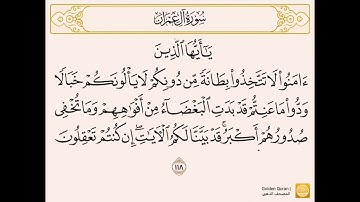 سُورَةُ آلِ عِمْرَانَ
يَـٰٓأَيُّهَا ٱلَّذِينَ
ءَامَنُوا۟ لَا تَتَّخِذُوا۟ بِطَانَةً مِّن دُونِكُمْ لَا يَأْلُونَكُمْ خَبَالًا
وَدُّوا۟ مَا عَنِتُّمْ قَدْ بَدَتِ ٱلْبَغْضَآءُ مِنْ أَفْوَٰهِهِمْ وَمَا تُخْفِى
صُدُورُهُمْ أَكْبَرُ ۚ قَدْ بَيَّنَّا لَكُمُ ٱلْـَٔايَـٰتِ ۖ إِن كُنتُمْ تَعْقِلُونَ
١١٨
Golden Quran |
المصحف الذهبي